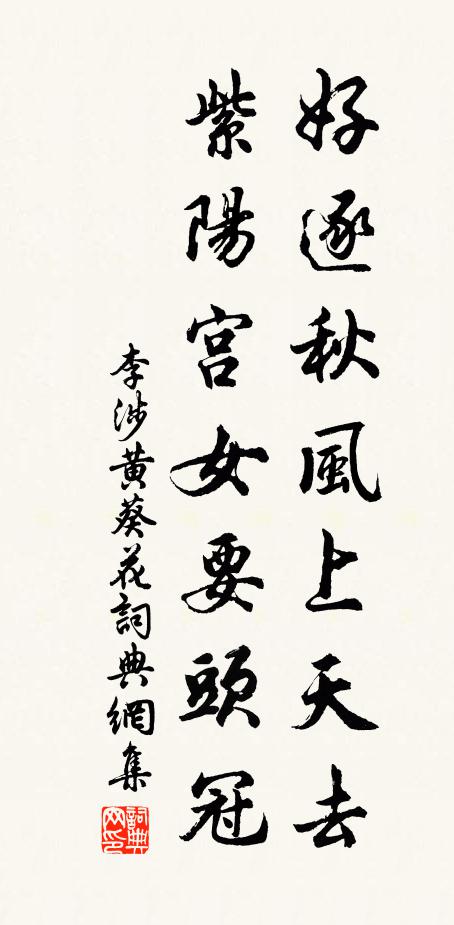 好逐秋風上天去
紫陽宫女要頭冠
李涉黄葵花詞典網集
詞典网印